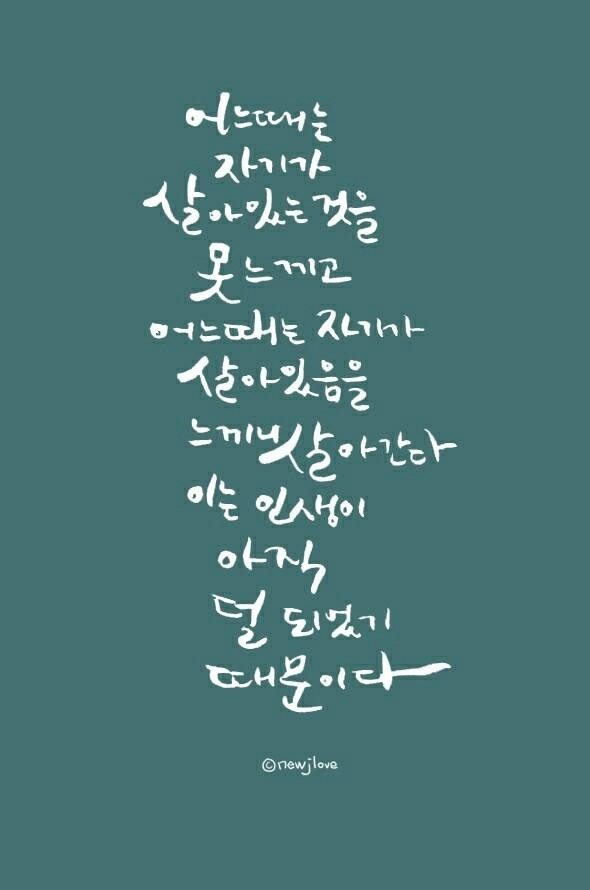 어느때는
자기가
살아있는것을
못느끼고
어느때는 자기가
살아있음을
느끼니살아간다
이는 인생이
아직
덜 되었기
때문이다
©newjlove